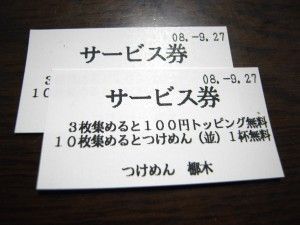 08.-9.27
サービス券
3
10
08.-9.27
サービス券
3枚集めると100円トッピング無料
10枚集めるとつけめん(並)1杯無料
つけめん